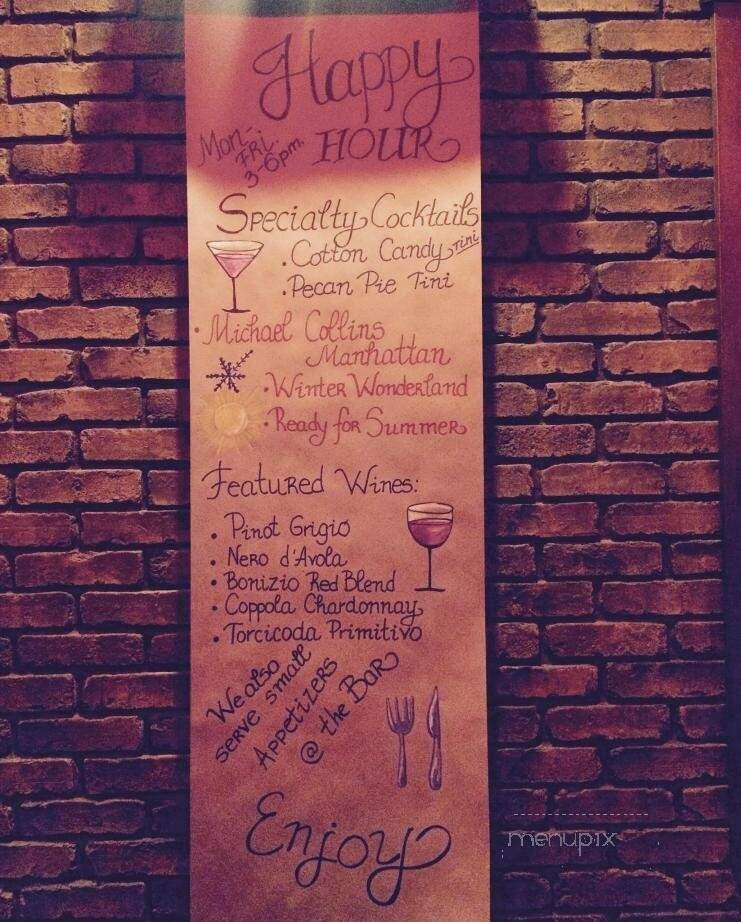 Happy
Mon-
Fri.
3-6pm.
HOUR
Specialty Cocktails
• Cotton Candy Tini
• Pecan Pie Tini
• Michael Collins
Manhattan
• Winter Wonderland
• Ready for Summer
Featured Wines:
• Pinot Grigio
• Nero d'Avola
• Bonizio Red Blend
• Coppola Chardonnay
• Torcicoda Primitivo
We also
serve small
Appetizers
@ the Bar
Enjoy
menupix